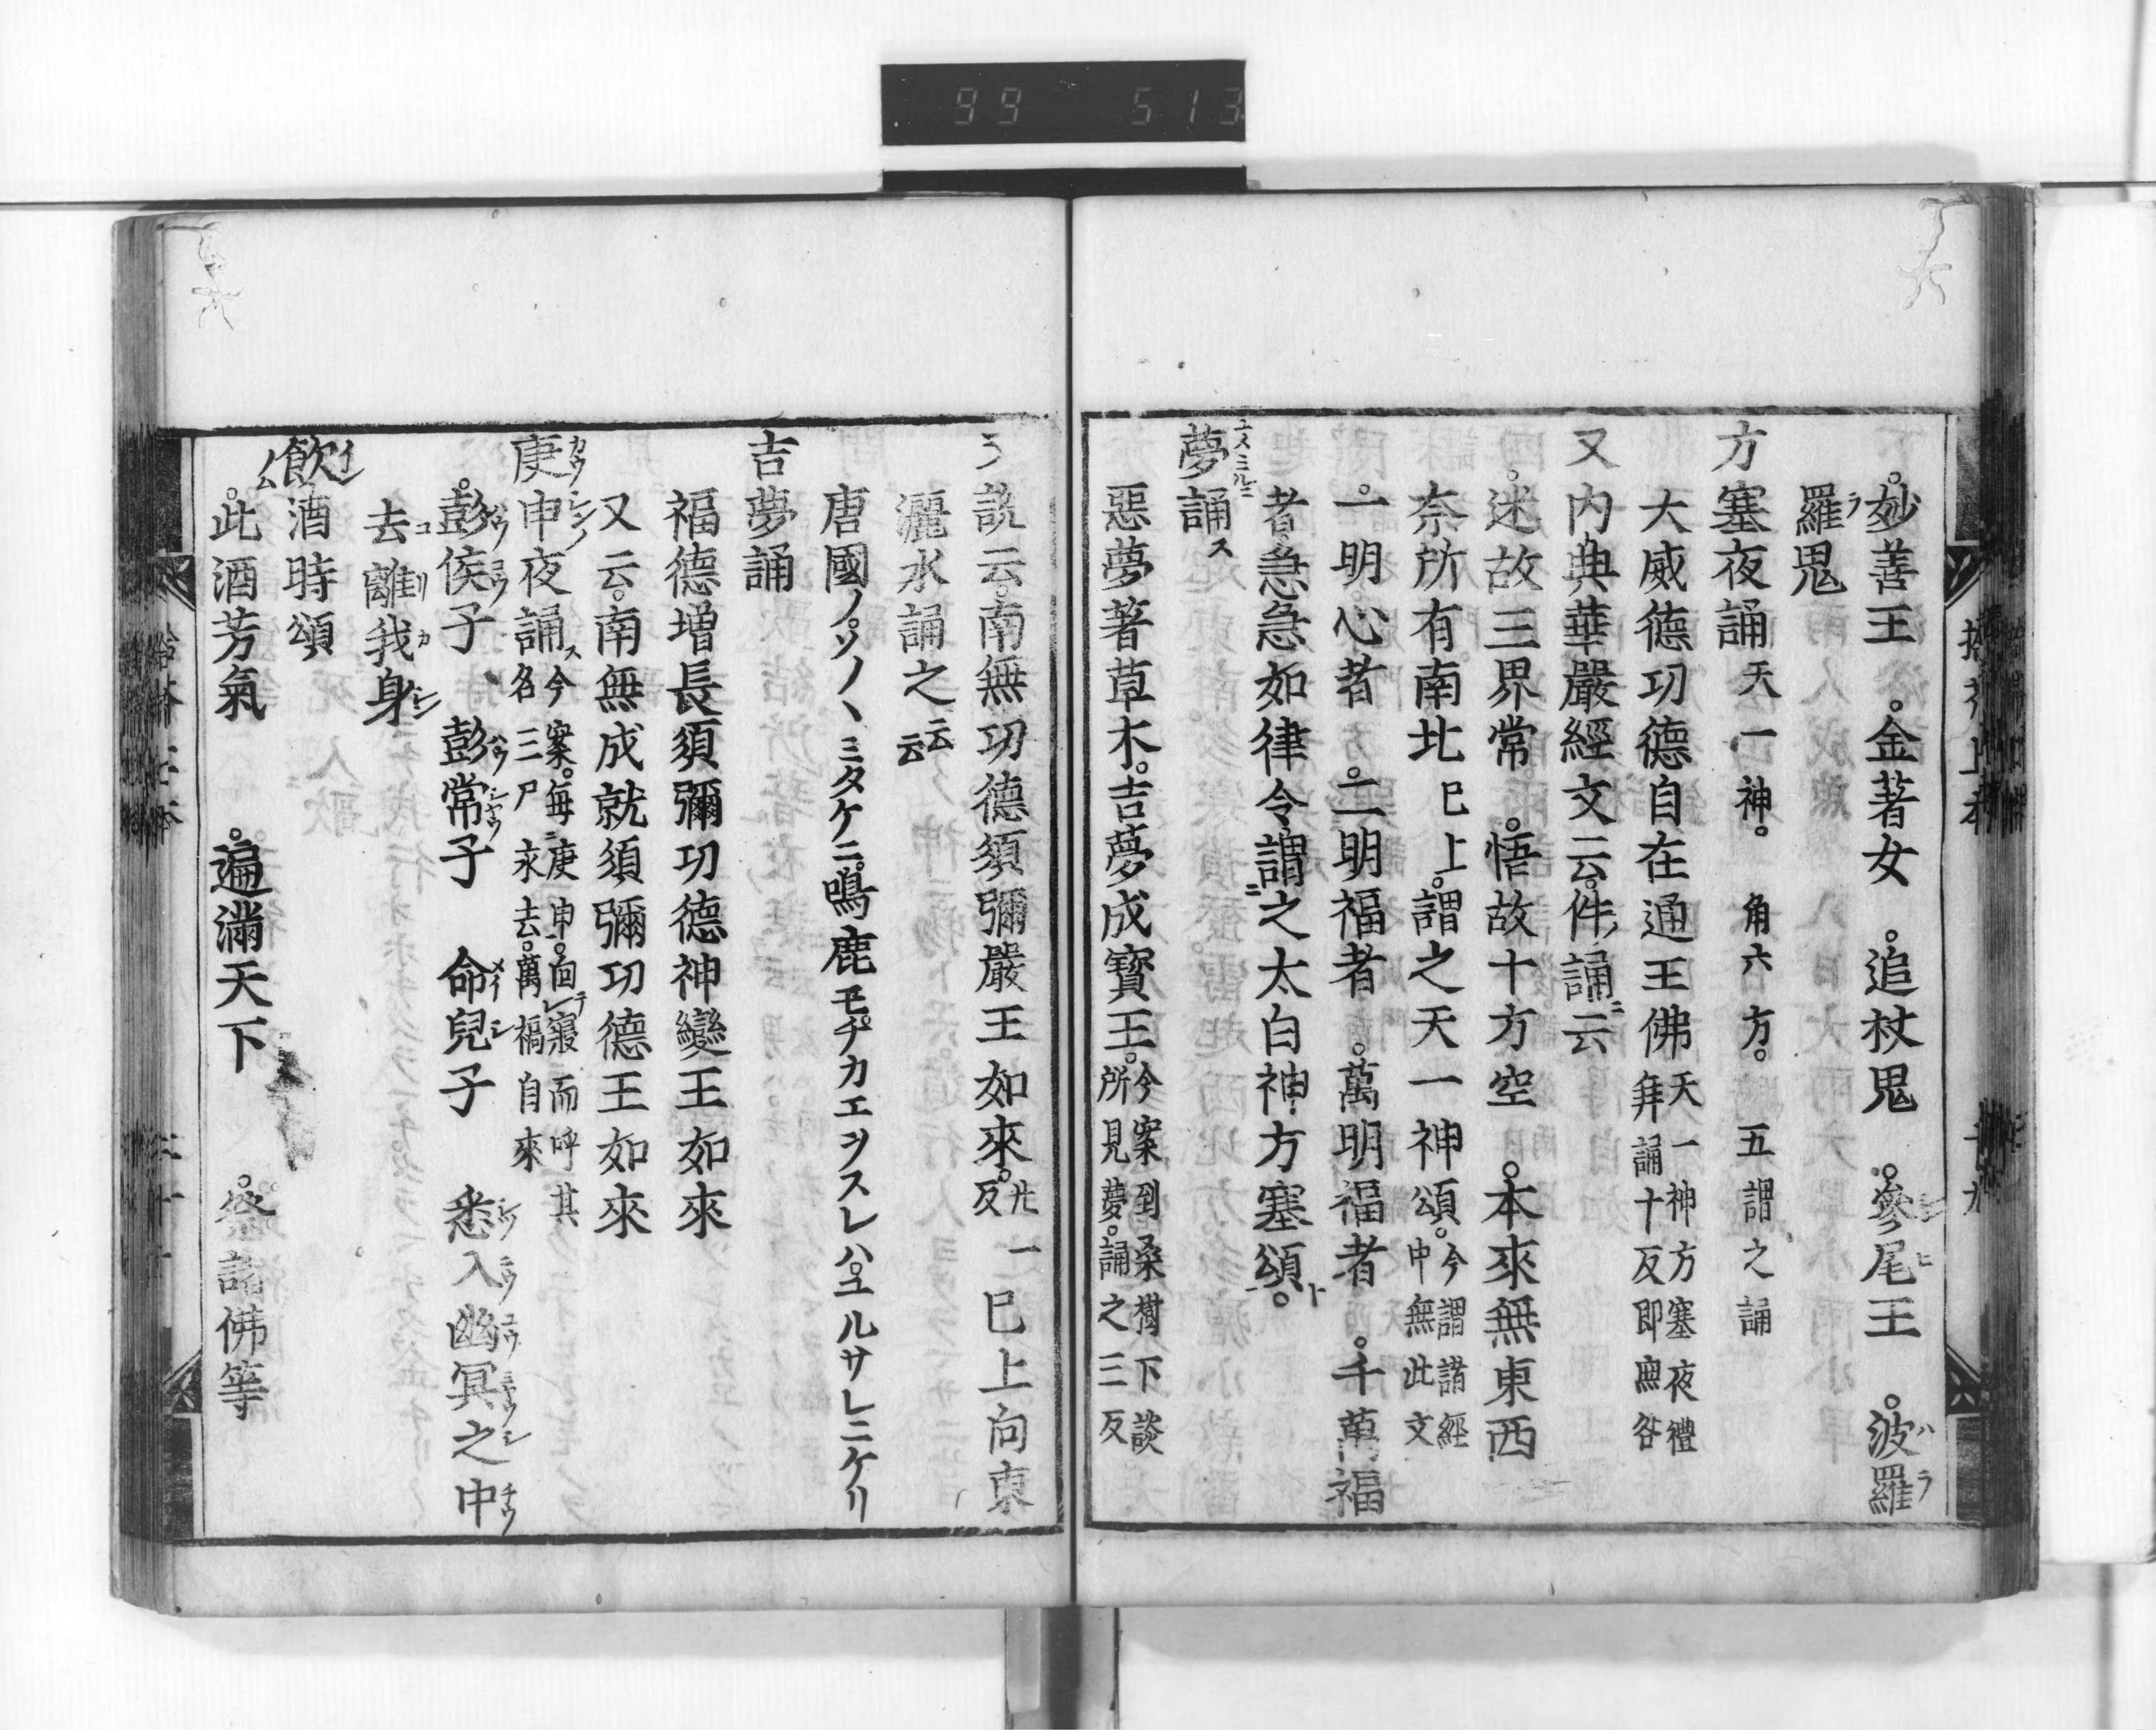 99 513
妙善王 金著女 追杖鬼 參尾王 波羅
羅鬼
方塞夜誦 天一神。角六方。五謂之誦
大威德功德自在通王佛 天一神方塞夜禮
拜誦十反即無咎
又内典華嚴經文云件誦云
迷故三界常 悟故十方空 本來無東西
奈所有南北 巳上。謂之天一神頌。今謂諸經
中無此文
一明心者 二明福者 萬明福者 千萬福
者急急如律令謂之太白神方塞頌。
夢誦ス
惡夢著草木。吉夢成寶王。今案到桑樹下談
所見夢。誦之三反
説云。南無功德須彌嚴王如來。廿一
反 巳上向東
灑水誦之云云
唐國ノソノヽミタケニ鳴鹿モチカエヲスレハユルサレニケリ
吉夢誦
福德增長須彌功德神變王如來
又云。南無成就須彌功德王如來
庚申夜誦ス 今案。每庚申。向寢而呼其
名三尸永去。萬福自來
彭侯子 彭常子 命兒子 悉入幽冥之中
去離我身
飮酒時頌
此酒芳氣 遍滿天下 祭諸佛等